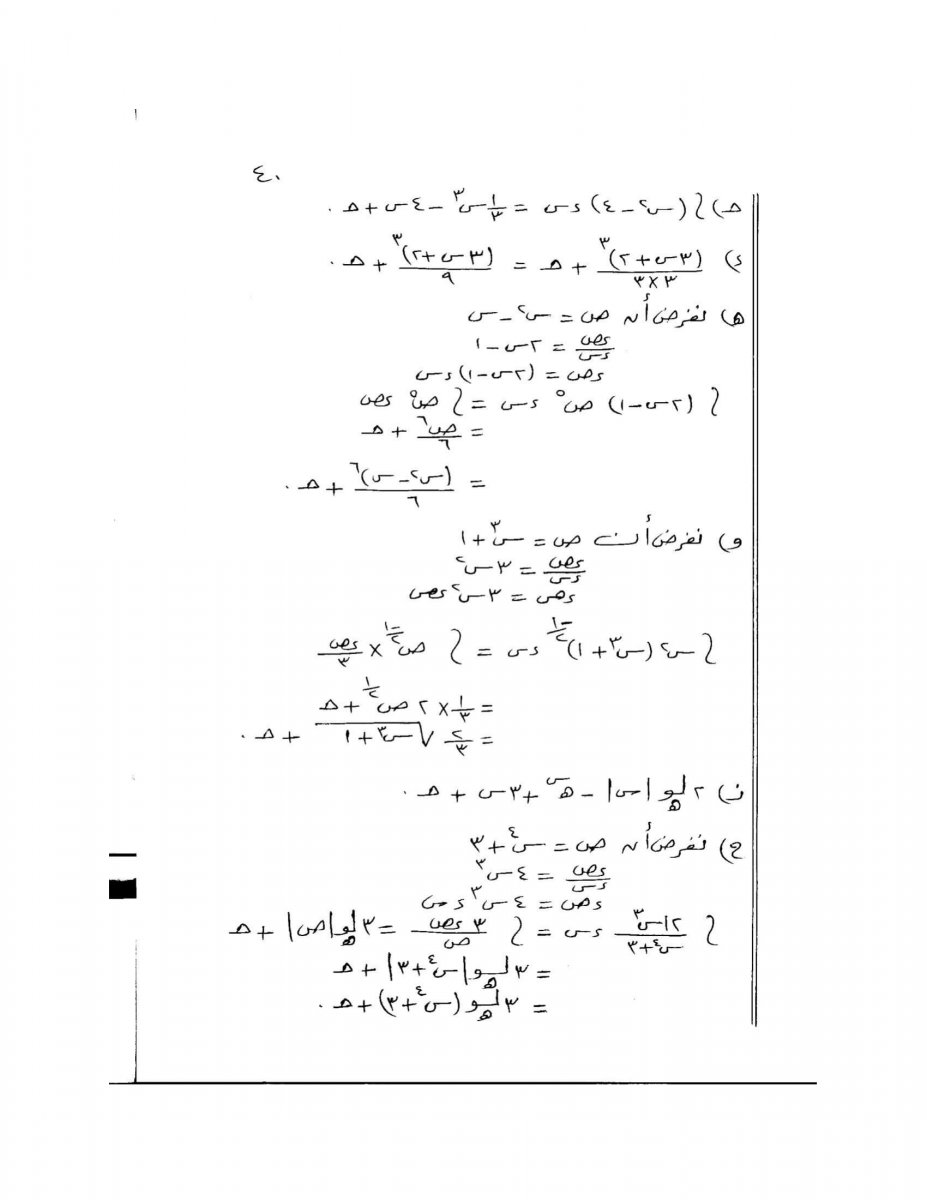 ٤٠
ح) ∫ (س٢ - ٤) ءس = ١/٣ س٣ - ٤س + ح.
ء) (٣س + ٢)٣ / ٣×٣ + ح = (٣س + ٢)٣ / ٩ + ح.
ه) نفرض أن ص = س٢ - س
ءص/ءس = ٢س - ١
ءص = (٢س - ١) ءس
∫ (٢س - ١) ص٥ ءس = ∫ ص٥ ءص
= ص٦/٦ + ح
= (س٢ - س)٦ / ٦ + ح.
و) نفرض أن ص = س٣ + ١
ءص/ءس = ٣س٢
ءص = ٣س٢ ءص
∫ س٢ (س٣ + ١)^(-١/٢) ءس = ∫ ص^(-١/٢) × ءص/٣
= ١/٣ × ٢ ص^(١/٢) + ح
= ٢/٣ √(س٣ + ١) + ح.
ز) ٢ لوه |س| - هس + ٣س + ح.
ح) نفرض أن ص = س٤ + ٣
ءص/ءس = ٤س٣
ءص = ٤س٣ ءس
∫ ١٢س٣ / س٤+٣ ءس = ∫ ٣ءص / ص = ٣ لوه |ص| + ح
= ٣ لوه |س٤ + ٣| + ح
= ٣ لوه (س٤ + ٣) + ح.